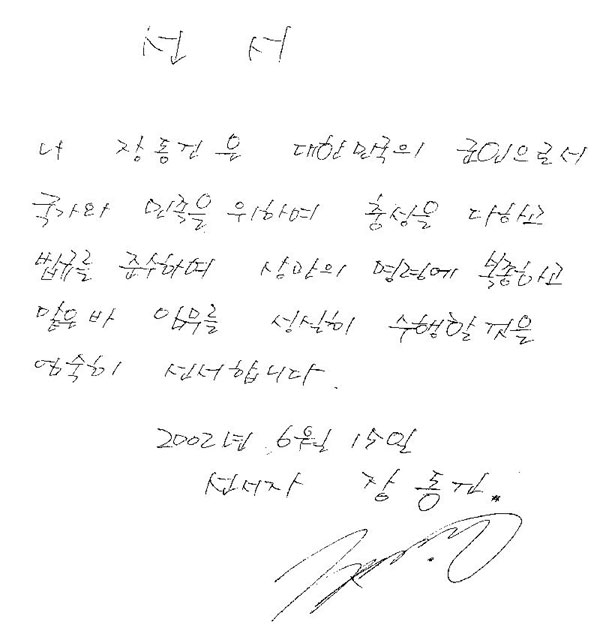 선 서
나 장동건은 대한민국의 군인으로서
국가와 민족을 위하여 충성을 다하고
법규를 준수하며 상관의 명령에 복종하고
맡은바 임무를 성실히 수행할것을
엄숙히 선서합니다.
2002년 6월 15일
선서자 장동건.